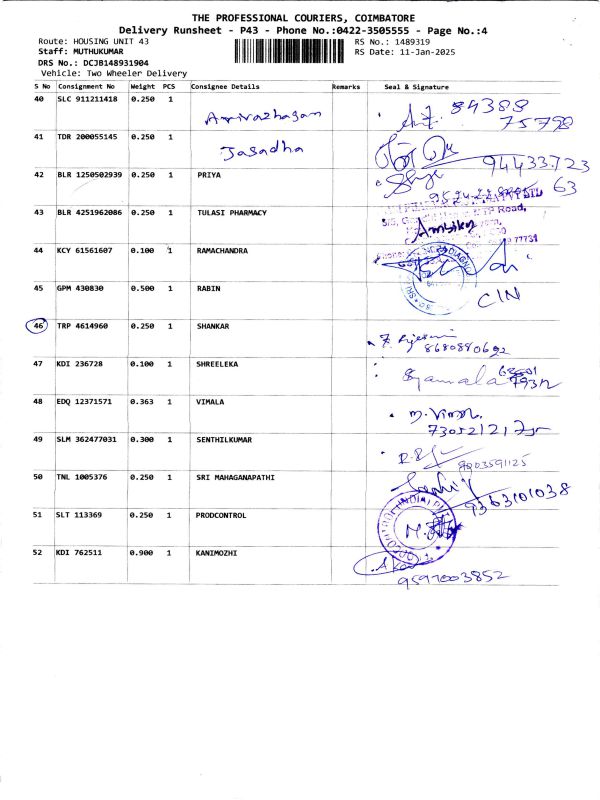 THE PROFESSIONAL COURIERS, COIMBATORE
Delivery Runsheet - P43 - Phone No.:0422-3505555 - Page No.:4
Route: HOUSING UNIT 43 RS No.: 1489319
Staff: MUTHUKUMAR RS Date: 11-Jan-2025
DRS No.: DCJB148931904
Vehicle: Two Wheeler Delivery
S No Consignment No Weight PCS Consignee Details Remarks Seal & Signature
40 SLC 911211418 0.250 1 Arrivazhagan 84388
75798
41 TDR 200055145 0.250 1 Jasadha
94433723
63
42 BLR 1250502939 0.250 1 PRIYA
43 BLR 4251962086 0.250 1 TULASI PHARMACY Road,
Ambika
44 KCY 61561607 0.100 1 RAMACHANDRA
45 GPM 430830 0.500 1 RABIN CIN
46 TRP 4614960 0.250 1 SHANKAR
8680880692
47 KDI 236728 0.100 1 SHREELEKA Syamala
48 EDQ 12371571 0.363 1 VIMALA m.Vimala
49 SLM 362477031 0.300 1 SENTHILKUMAR
9003591125
50 TNL 1005376 0.250 1 SRI MAHAGANAPATHI
9363101038
51 SLT 113369 0.250 1 PRODCONTROL
52 KDI 762511 0.900 1 KANIMOZHI
9597003852